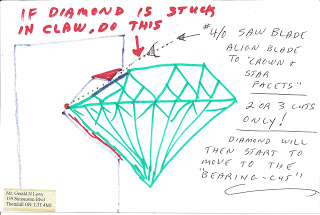 IF DIAMOND IS STUCK
IN CLAW, DO THIS
#4/0 SAW BLADE
ALIGN BLADE
TO "CROWN &
STAR
FACETS"
2 OR 3 CUTS
ONLY!
DIAMOND WILL
THEN START TO
MOVE TO THE
"BEARING-CUT"
Mr. Gerald N Lewy
Thornhill ON L3T 4M8